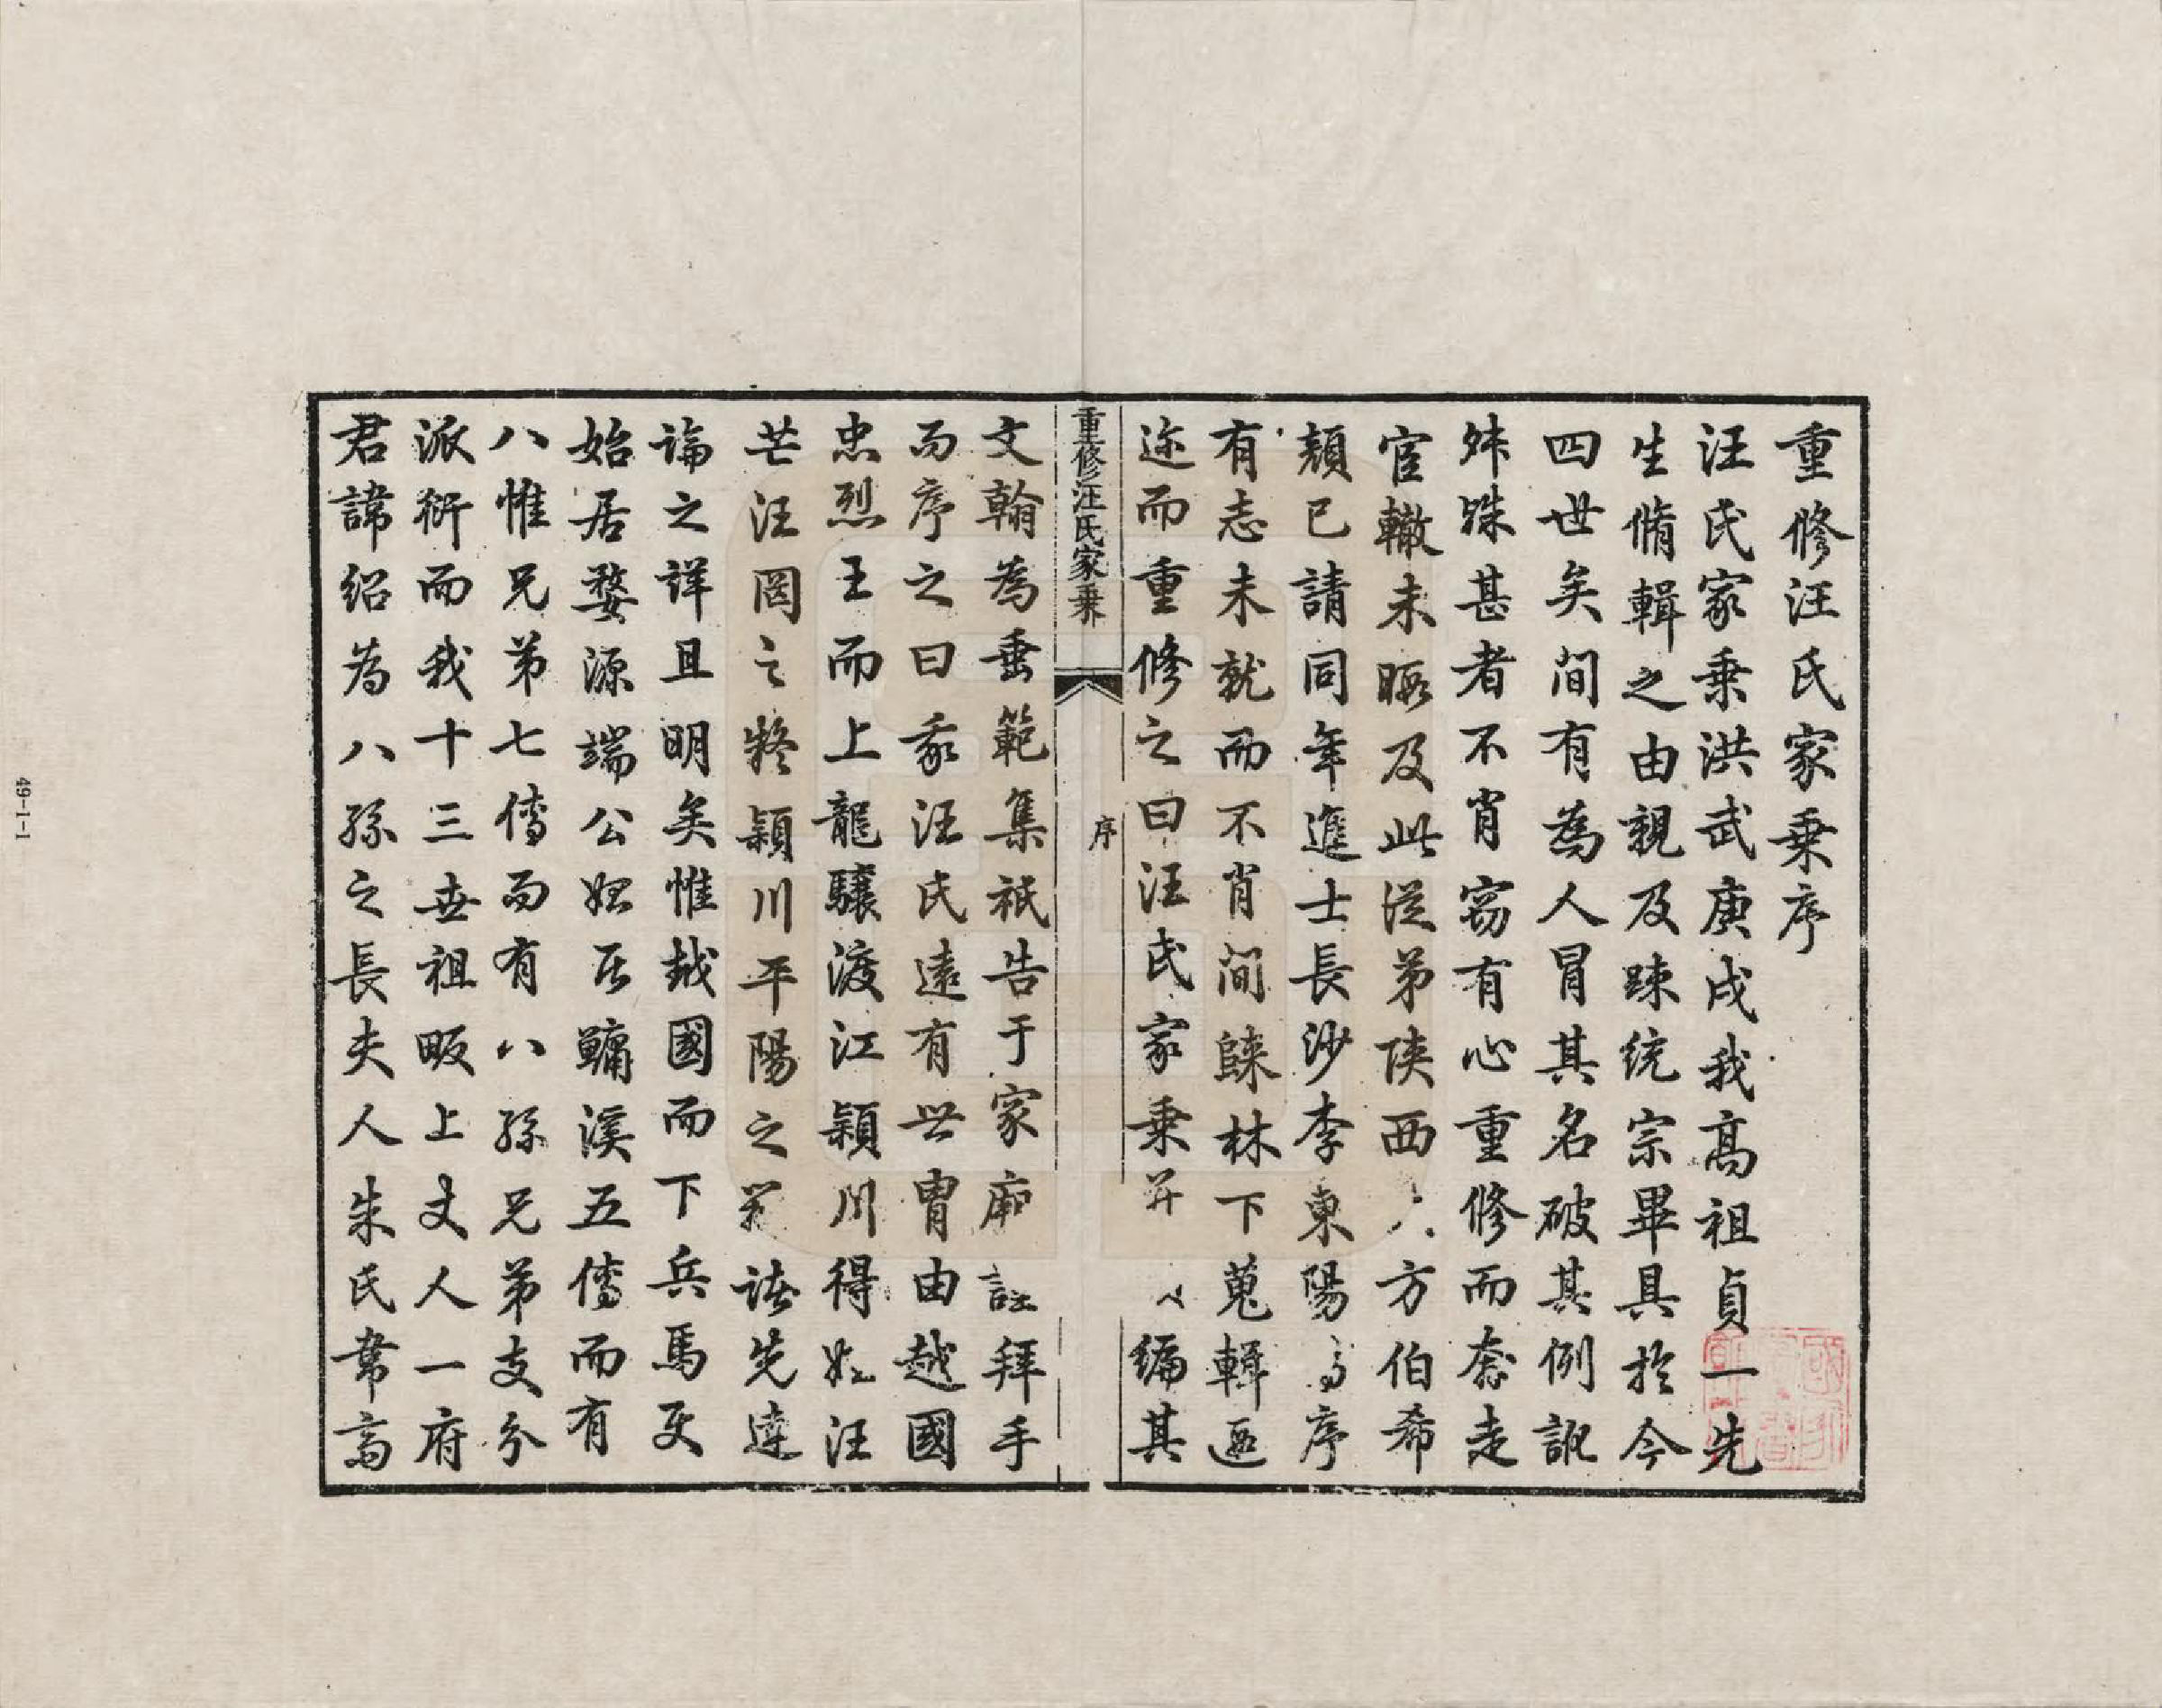 重修汪氏家乗序
汪氏家乗洪武庚戌我髙祖貞一先
生脩輯之由親及踈統宗畢具於今
四世矣间有為人冒其名破其例訛
舛殊甚者不肖窃有心重修而奈走
宦轍未暇及此從弟陕西 方伯希
顔已請同年進士長沙李東陽 序
有志未就而不肖间歸林下蒐輯
迹而重修之曰汪氏家乗并 編其
重修汪氏家乗
序
文翰為垂範集祇告于家廟 拜手
而序之曰我汪氏遠有世胄由越國
忠烈王而上龍驤渡江穎川得姓汪
芒汪罔之 穎川平陽之 諸先達
論之詳且明矣惟越國而下兵馬
始居婺源端公始居鱅溪五傳而有
八惟兄弟七傳而有八孫兄弟支分
派衍而我十三世祖畈上丈人一府
君諱紹為八孫之長夫人朱氏常高
49-1-1